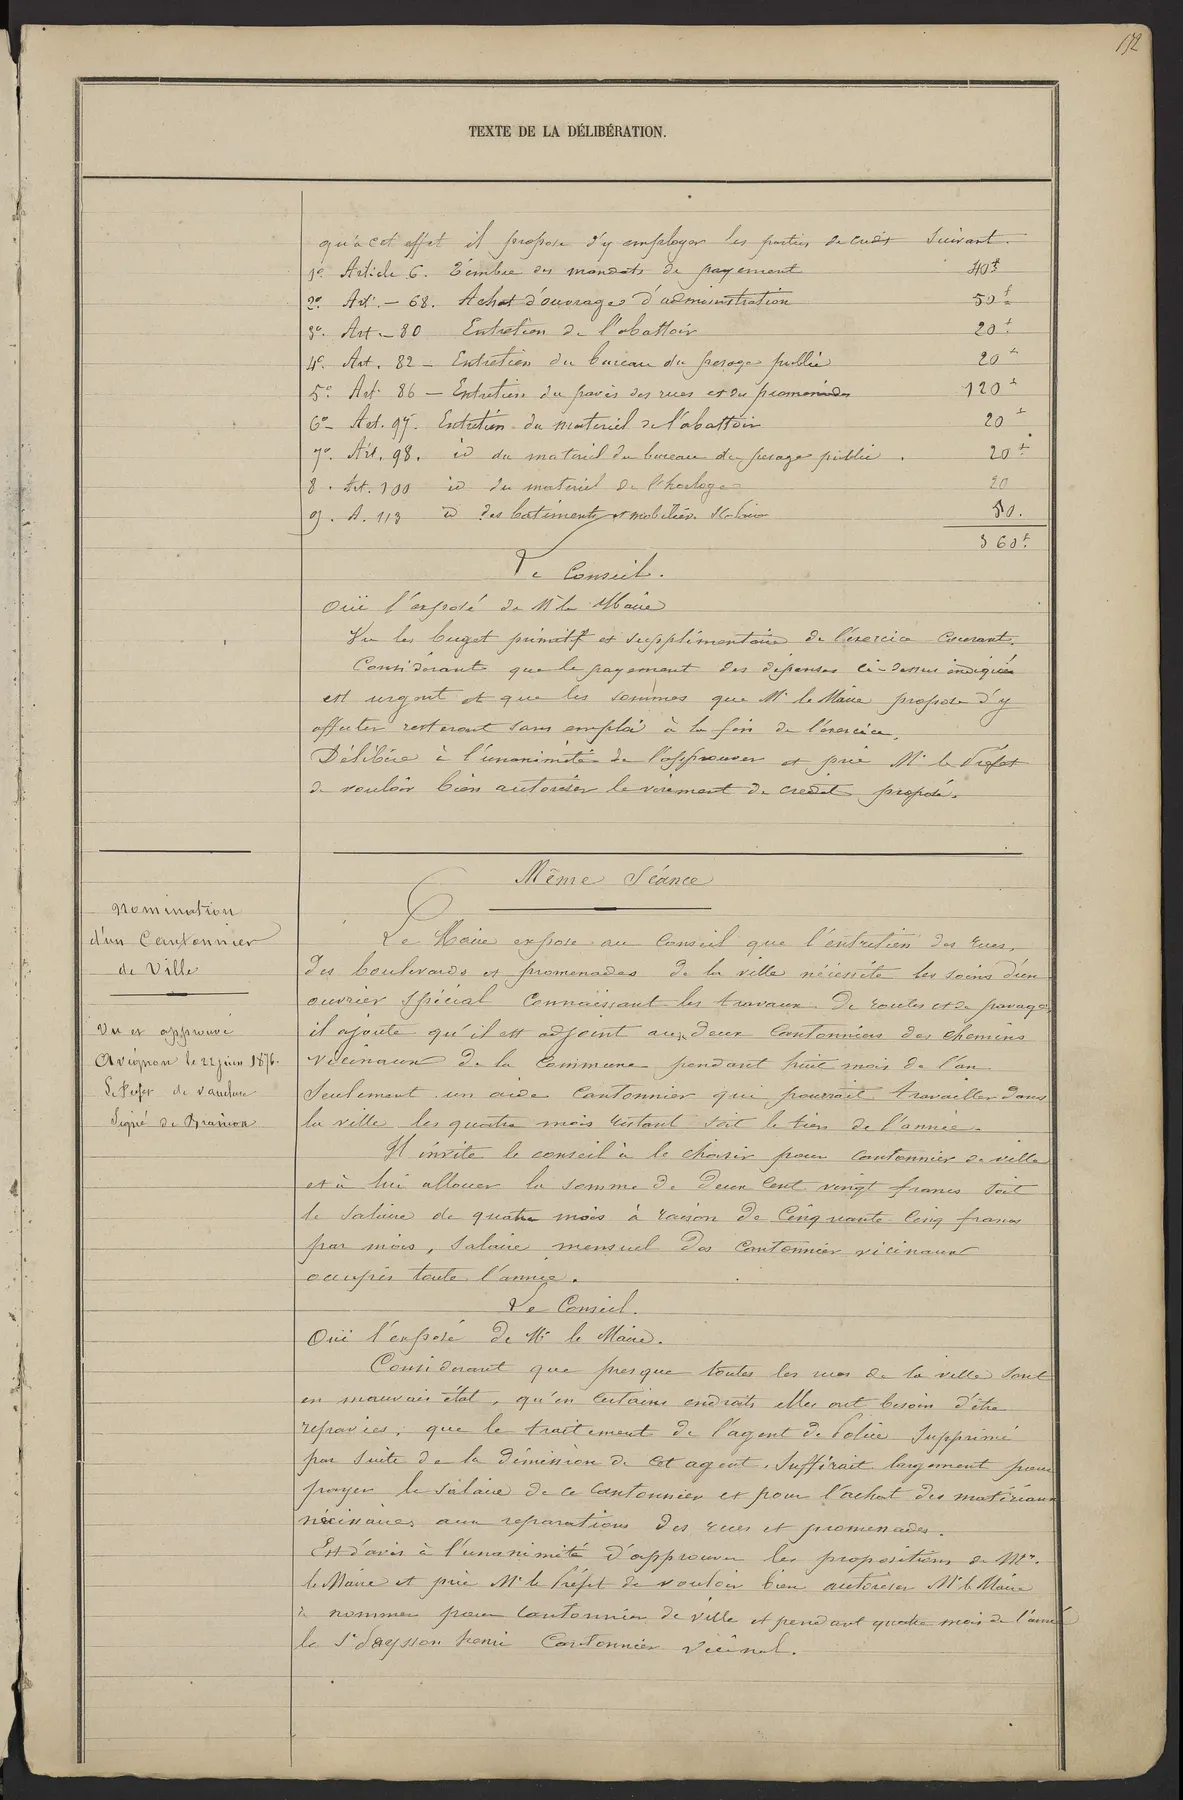 132
TEXTE DE LA DÉLIBÉRATION.
qu'à cet effet il propose d'y employer les parties de credit suivant.
1o. Article 6. Timbre des mandats de payement 40f
2o. Art. — 68. Achat d'ouvrages d'administration 50f
3o. Art — 80 Entretien de l'abattoir 20f
4o. Art. 82 — Entretien du bureau du pesage public 20f
5o Art. 86 — Entretien du pavés des rues et des promenades 120f
6o — Art. 97. Entretien du materiel de l'abattoir 20f
7o. Art. 98. id du materiel du bureau du pesage public. 20f
8. Art. 100 id du materiel de l'horloge 20
9. A. 113 id des batiments et mobilier 50.
360f.
Le Conseil.
Ouï l'exposé de Mr le Maire
Vu les buget primitif et supplimentaire de l'exercice courant.
Considerant que le payement des dépenses ci-dessus indiquées
est urgent et que les sommes que Mr le Maire propose d'y
affecter resteront sans emploi à la fin de l'exercice.
Délibère à l'unanimité de l'approuver et prie Mr le Préfet
de vouloir bien autoriser le virement de credit proposé.
Même Séance
Nomination
d'un Cantonnier
de Ville
Vu et approuvé
Avignon le 22 juin 1876.
Le Prefet de Vaucluse
Signé
Le Maire expose au Conseil que l'entretien des rues,
des boulevards et promenades de la ville nécéssite les soins d'un
ouvrier spécial connaissant les travaux de routes et de pavage
il ajoute qu'il est adjoint aux deux Cantonniers des chemins
vicinaux de la Commune pendant huit mois de l'an
seulement un aide Cantonnier qui pourrait travailler dans
la ville les quatre mois restant soit le tiers de l'année.
Il invite le conseil à le choisir pour cantonnier de ville
et à lui allouer la somme de deux cent vingt francs soit
le salaire de quatre mois à raison de Cinquante Cinq francs
par mois, salaire mensuel des Cantonnier vicinaux
occupés toute l'année.
Le Conseil.
Ouï l'exposé de Mr le Maire.
Considerant que presque toutes les rues de la ville sont
en mauvais état, qu'en certains endroits elles ont besoin d'être
repavées; que le traitement de l'agent de Police supprimé
par suite de la démission de cet agent, suffirait largement pour
payer le salaire de ce Cantonnier et pour l'achat des matériaux
nécéssaires aux reparations des rues et promenades.
Est d'avis à l'unanimité d'approuver les propositions de Mr.
le Maire et prie Mr le Préfet de vouloir bien autoriser Mr le Maire
à nommer pour cantonnier de ville et pendant quatre mois de l'année
le Sr henri Cantonnier vicinal.